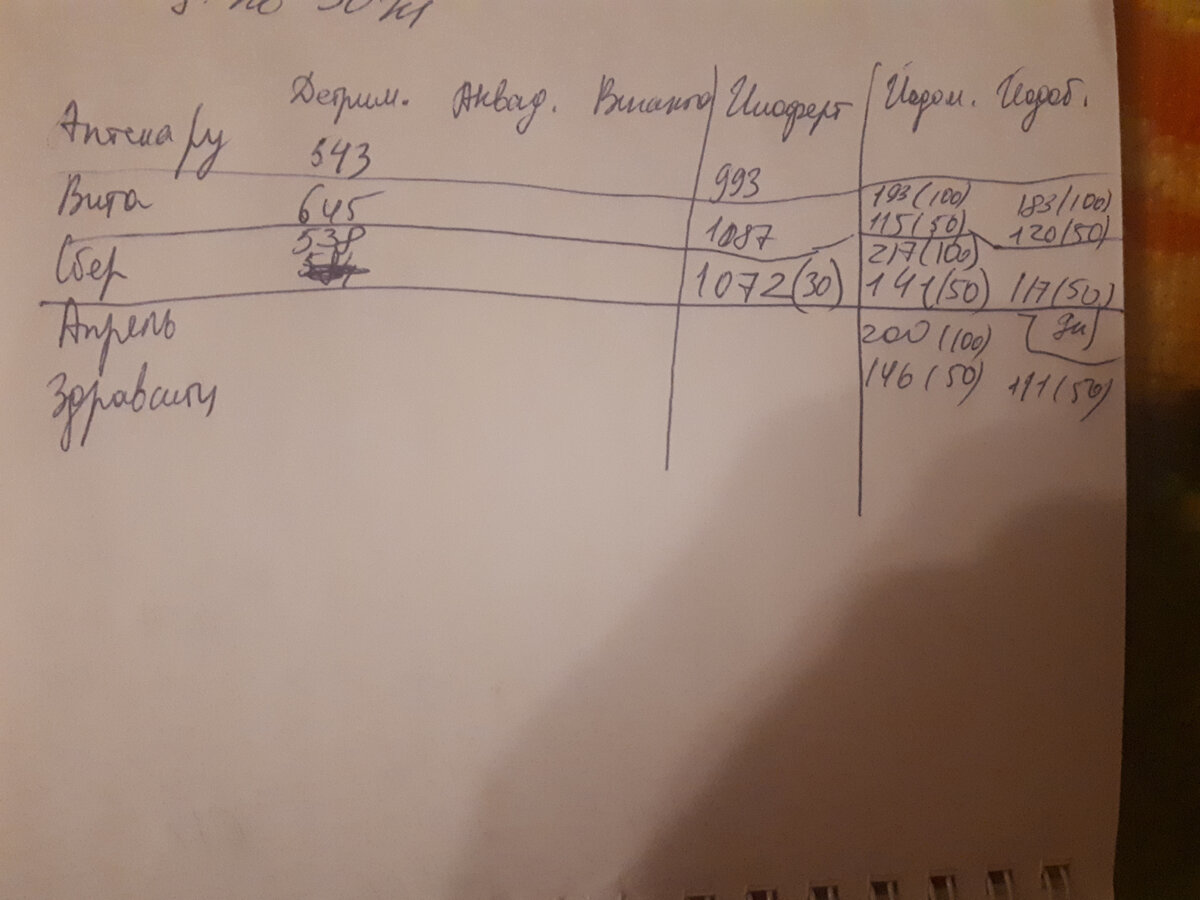 по 30
Детрим. Аквад. Вигантол Иноферт Йодом. Йодоб.
Аптека ру 543 993 193 (100) 183 (100)
115 (50) 120 (50)
Вита 645 1087 217 (100)
141 (50) 117 (50)
Сбер 538 1072 (30) 200 (100)
146 (50) 111 (50)
Апрель
Здравсити